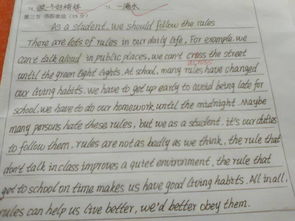 As a student, we should follow the rules
There are lots of rules in our daily life. For example, we
can't talk aloud in public places, we can't cross the street
until the green light lights. At school, many rules have changed
our living habits. we have to get up early to avoid being late for
school. we have to do our homework until the midnight. Maybe
many persons hate these rules, but we as a student. it's our duties
to follow them. rules are not as badly as we think, the rule that
don't talk in class improves a quiet environment, the rule that
get to school on time makes us have good living habits. All in all,
rules can help us live better, we'd better obey them.